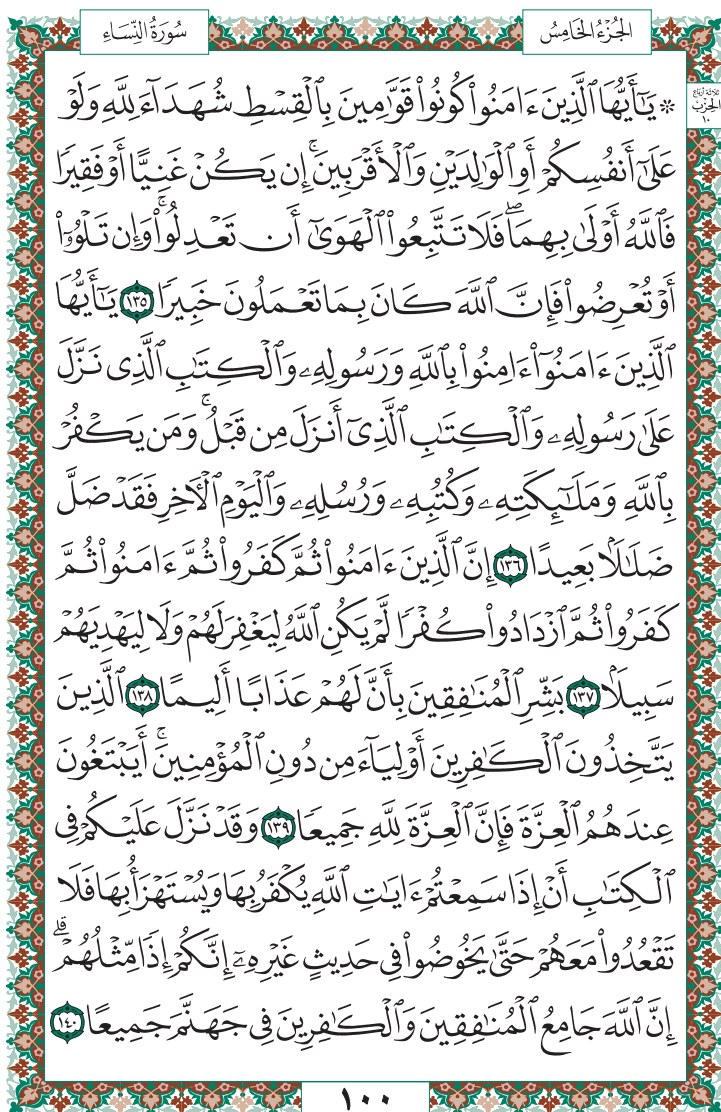 الجُزْءُ الخَامِسُ
سُورَةُ النِّسَاءِ
ثلاثة أرباع
الحزب
١٠
۞ يَٰٓأَيُّهَا ٱلَّذِينَ ءَامَنُوا۟ كُونُوا۟ قَوَّٰمِينَ بِٱلْقِسْطِ شُهَدَآءَ لِلَّهِ وَلَوْ
عَلَىٰٓ أَنفُسِكُمْ أَوِ ٱلْوَٰلِدَيْنِ وَٱلْأَقْرَبِينَ ۚ إِن يَكُنْ غَنِيًّا أَوْ فَقِيرًا
فَٱللَّهُ أَوْلَىٰ بِهِمَا ۖ فَلَا تَتَّبِعُوا۟ ٱلْهَوَىٰٓ أَن تَعْدِلُوا۟ ۚ وَإِن تَلْوُۥٓا۟
أَوْ تُعْرِضُوا۟ فَإِنَّ ٱللَّهَ كَانَ بِمَا تَعْمَلُونَ خَبِيرًا ١٣٥ يَٰٓأَيُّهَا
ٱلَّذِينَ ءَامَنُوٓا۟ ءَامِنُوا۟ بِٱللَّهِ وَرَسُولِهِۦ وَٱلْكِتَٰبِ ٱلَّذِى نَزَّلَ
عَلَىٰ رَسُولِهِۦ وَٱلْكِتَٰبِ ٱلَّذِىٓ أَنزَلَ مِن قَبْلُ ۚ وَمَن يَكْفُرْ
بِٱللَّهِ وَمَلَٰٓئِكَتِهِۦ وَكُتُبِهِۦ وَرُسُلِهِۦ وَٱلْيَوْمِ ٱلْـَٔاخِرِ فَقَدْ ضَلَّ
ضَلَٰلًۢا بَعِيدًا ١٣٦ إِنَّ ٱلَّذِينَ ءَامَنُوا۟ ثُمَّ كَفَرُوا۟ ثُمَّ ءَامَنُوا۟ ثُمَّ
كَفَرُوا۟ ثُمَّ ٱزْدَادُوا۟ كُفْرًا لَّمْ يَكُنِ ٱللَّهُ لِيَغْفِرَ لَهُمْ وَلَا لِيَهْدِيَهُمْ
سَبِيلًۢا ١٣٧ بَشِّرِ ٱلْمُنَٰفِقِينَ بِأَنَّ لَهُمْ عَذَابًا أَلِيمًا ١٣٨ ٱلَّذِينَ
يَتَّخِذُونَ ٱلْكَٰفِرِينَ أَوْلِيَآءَ مِن دُونِ ٱلْمُؤْمِنِينَ ۚ أَيَبْتَغُونَ
عِندَهُمُ ٱلْعِزَّةَ فَإِنَّ ٱلْعِزَّةَ لِلَّهِ جَمِيعًا ١٣٩ وَقَدْ نَزَّلَ عَلَيْكُمْ فِى
ٱلْكِتَٰبِ أَنْ إِذَا سَمِعْتُمْ ءَايَٰتِ ٱللَّهِ يُكْفَرُ بِهَا وَيُسْتَهْزَأُ بِهَا فَلَا
تَقْعُدُوا۟ مَعَهُمْ حَتَّىٰ يَخُوضُوا۟ فِى حَدِيثٍ غَيْرِهِۦٓ ۚ إِنَّكُمْ إِذًا مِّثْلُهُمْ ۗ
إِنَّ ٱللَّهَ جَامِعُ ٱلْمُنَٰفِقِينَ وَٱلْكَٰفِرِينَ فِى جَهَنَّمَ جَمِيعًا ١٤٠
١٠٠